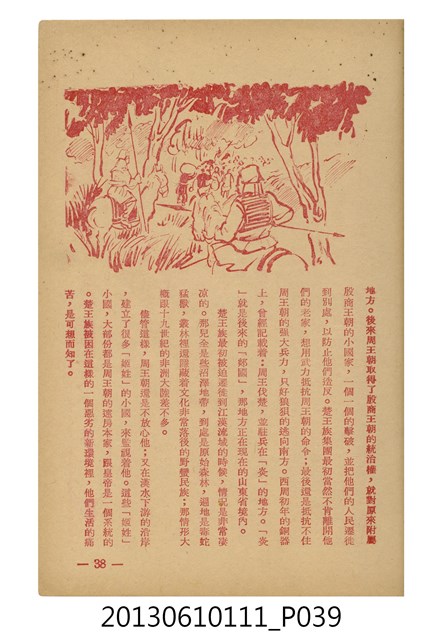 地方。後來周王朝取得了殷商王朝的統治權，就對原來附屬
殷商王朝的小國家，一個一個的擊破，並把他們的人民遷徙
到別處，以防止他們造反。楚王族集團最初當然不肯離開他
們的老家，想用武力抵抗周王朝的命令；最後還是抵抗不住
周王朝的強大兵力，只好狼狽的逃向南方。西周初年的銅器
上，曾經記載着：周王伐楚，並駐兵在「炎」的地方。「炎
」就是後來的「郯國」，那地方正在現在的山東省境內。
楚王族最初被迫遷徙到江漢流域的時候，情況是非常淒
涼的。那兒全是些沼澤地帶，到處是原始森林，遍地是毒蛇
猛獸，叢林裡還隱藏着文化非常落後的野蠻民族；那情形大
概跟十九世紀的非洲大陸差不多。
儘管這樣，周王朝還是不放心他；又在漢水下游的沿岸
，建立了很多「姬姓」的小國，來監視着他。這些「姬姓」
小國，大部份都是周王朝的遠房本家，跟皇帝是一個系統的
。楚王族被困在這樣的一個惡劣的新環境裡，他們生活的痛
苦，是可想而知了。
— 38 —
20130610111_P039